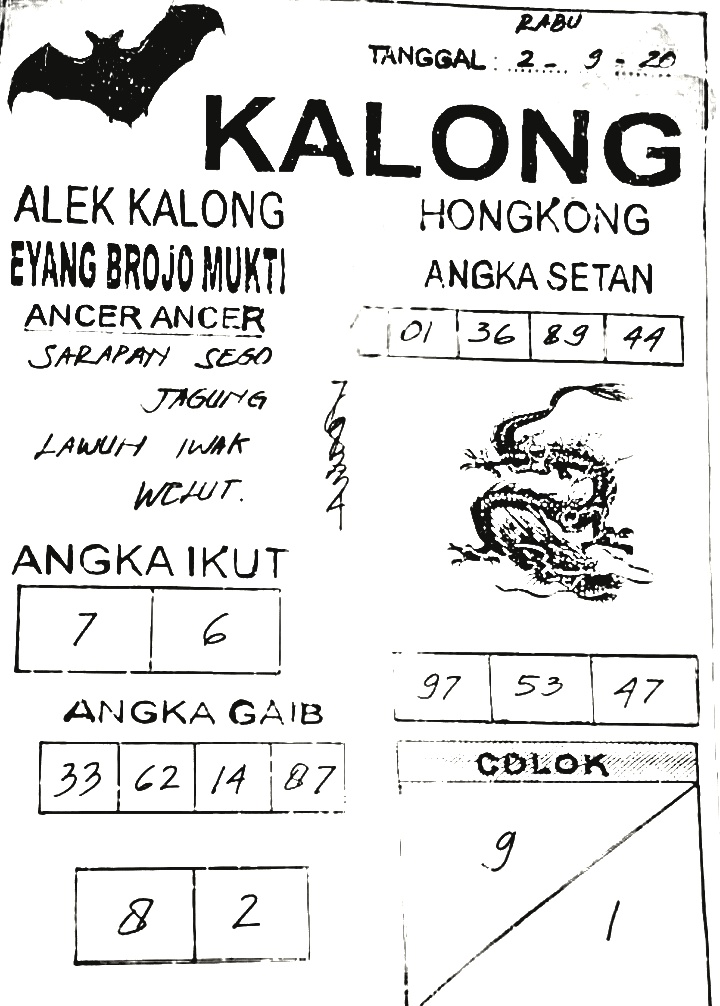 RABU
TANGGAL : 2 - 9 - 20
KALONG
ALEK KALONG
EYANG BROJO MUKTI
ANCER ANCER
SARAPAN SEGO
JAGUNG
LAWUH IWAK
WELUT.
ANGKA IKUT
7 6
ANGKA GAIB
33 62 14 87
8 2
HONGKONG
ANGKA SETAN
01 36 89 44
97 53 47
COLOK
9
1